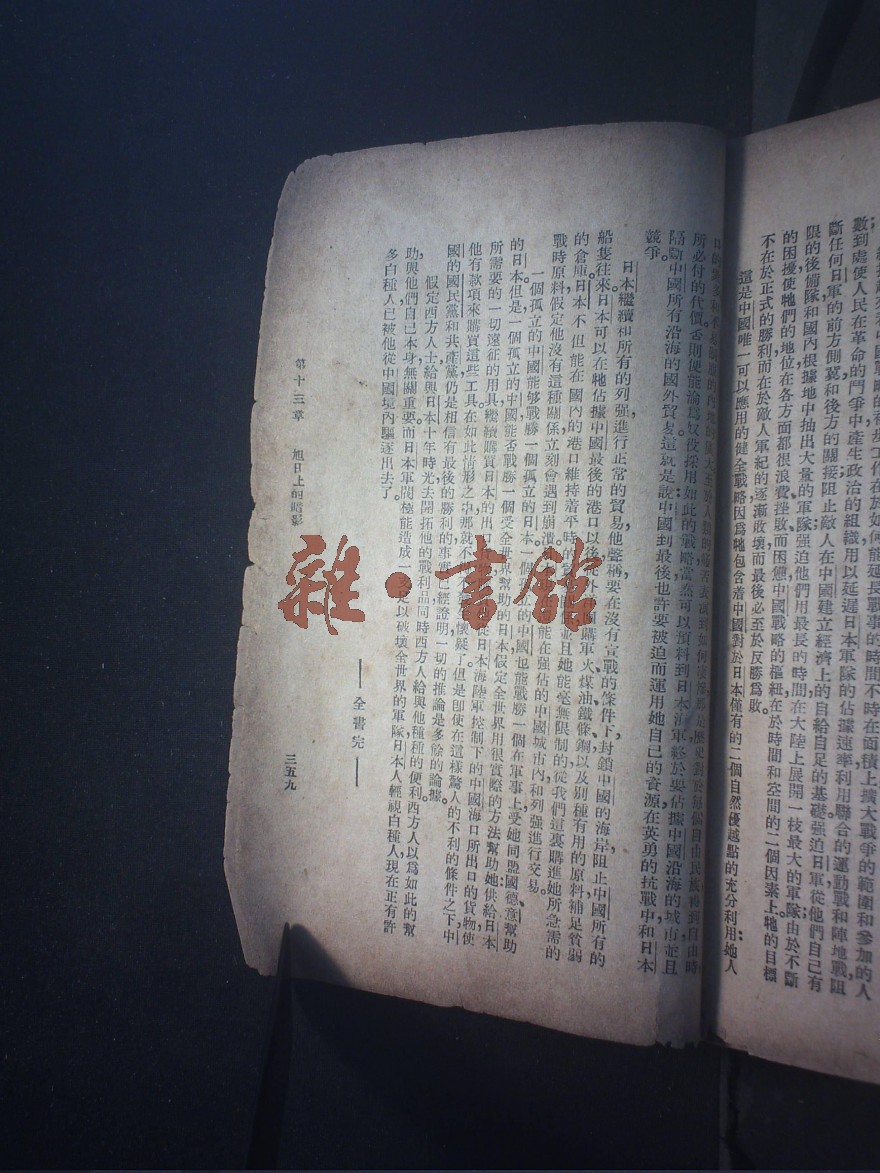 數到處使人民在革命的鬥爭中產生政治的組織用以延遲日本軍隊的佔據速率利用聯合的運動戰和陣地戰阻
斷任何日軍的前方側翼和後方的關接阻止敵人在中國建立經濟上的自給自足的基礎強迫日軍從他們自己有
限的後備隊和國內根據地中抽出大量的軍隊;強迫他們用最長的時間在大陸上展開一枝最大的軍隊由於不斷
的困擾使牠們的地位在各方面都很浪費,挫敗而困憊中國戰略的樞紐在於時間和空間的二個因素上牠的目標
不在於正式的勝利而在於敵人軍紀的逐漸敗壞而最後必至於反勝爲敗。
這是中國唯一可以應用的健全戰略因爲牠包含着中國對於日本僅有的二個自然優越點的充分利用:她人
所必付的代價否則便能淪爲奴役採用如此的戰略當然可以預料到日本海軍終於要佔據中國沿海的城市並且
隔斷中國所有沿海的國外貿易這就是說中國到最後也許要被迫而運用她自己的資源在英勇的抗戰中和日本
競爭。
日本繼續和所有的列強進行正常的貿易他聲稱要在沒有宣戰的條件下,封鎖中國的海岸阻止中國所有的
船隻往來日本可以在牠佔據中國最後的港口以後從外
購軍火煤油鐵條鋼以及別種有用的原料補足貧弱
的倉庫日本不但能在國內的港口維持着平時的
並且她能毫無限制的從我們這裏購進她所急需的
戰時原料假定他沒有這種關係立刻會遇到崩潰
能在強佔的中國城市內和列強進行交易。
一個孤立的中國能夠戰勝一個孤立的日本。一個
立的中國也能戰勝一個在軍事上受她同盟國德意幫助
的日本但是一個孤立的中國能否戰勝一個受全世界幫助的日本假定全世界用很實際的方法幫助她供給日本
所需要的一切遠征的用具繼續購買日本的出
從日本海陸軍控制下的中國海口所出口的貨物使
他有款項來購買這些工具。在如此情形之中那就不
懷疑了但是即使在這樣驚人的不利的條件之下,中
國的國民黨和共產黨仍是相信有最後的勝利的事實已經證明一切的推論是多餘的論據。
假定西方人士給與日本十年時光去開拓他的戰利品同時西方人給與他種種的便利西方人以爲如此的幫
助與他們自己本身無關重要。而日本軍閥極能造成一
足以破壞全世界的軍隊日本人輕視白種人,現在正有許
多白種人已被他從中國境內驅逐出去了。
——全書完——
第十三章 旭日上的暗影
三五九
雜·書館